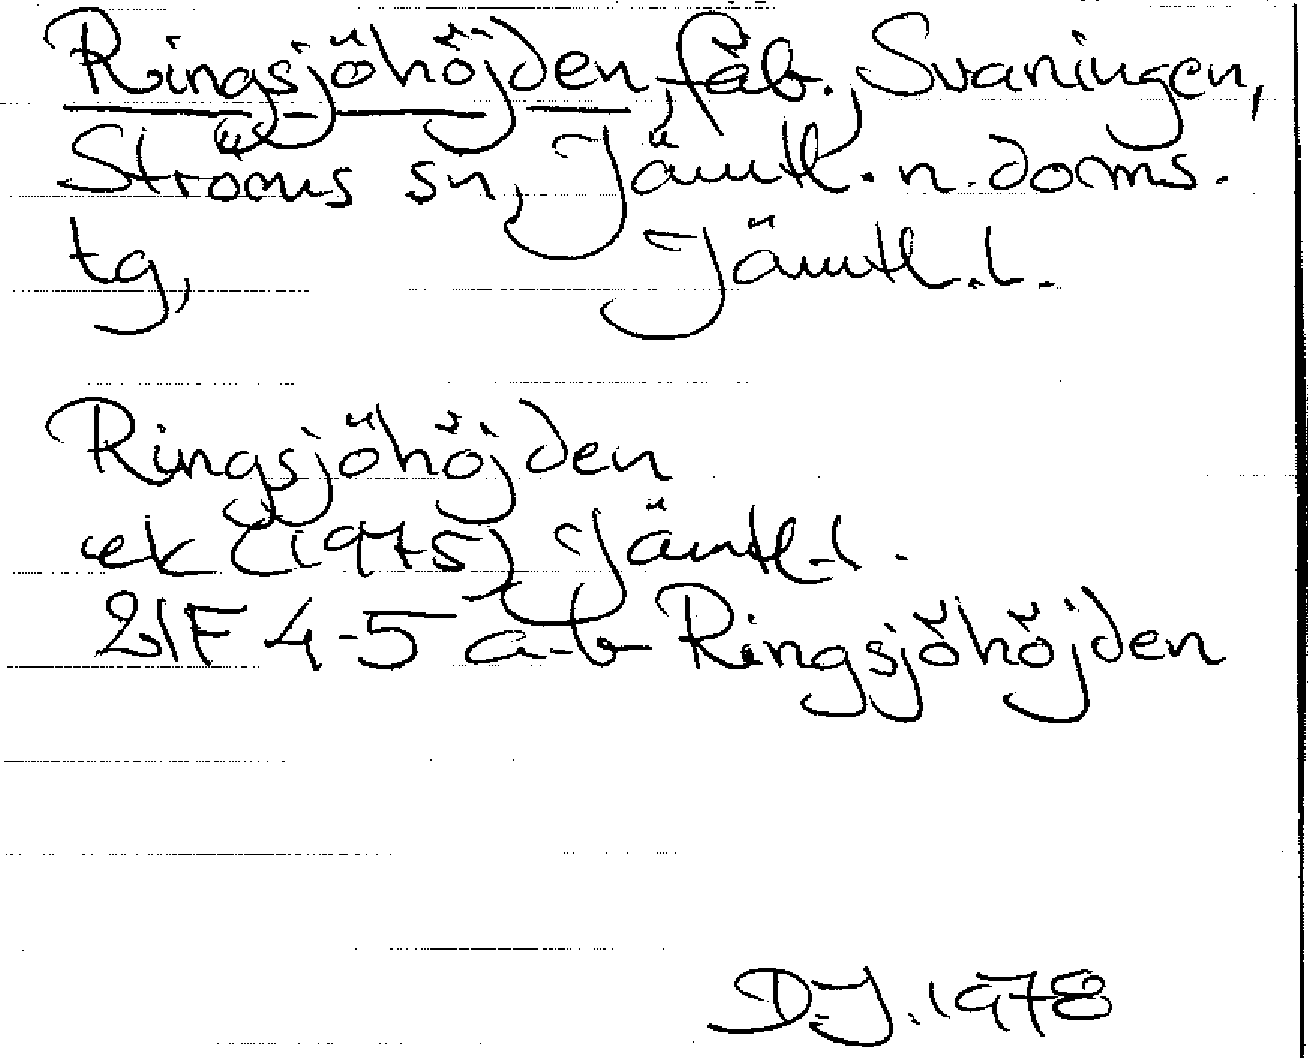 Ringsjöhöjden, fäb., Svaningen,
Ströms sn, Jämtl. n. doms.
tg, Jämtl. l.
Ringsjöhöjden
ek (1975) Jämtl. l.
21F 4-5 a-b Ringsjöhöjden
D.J. 1978